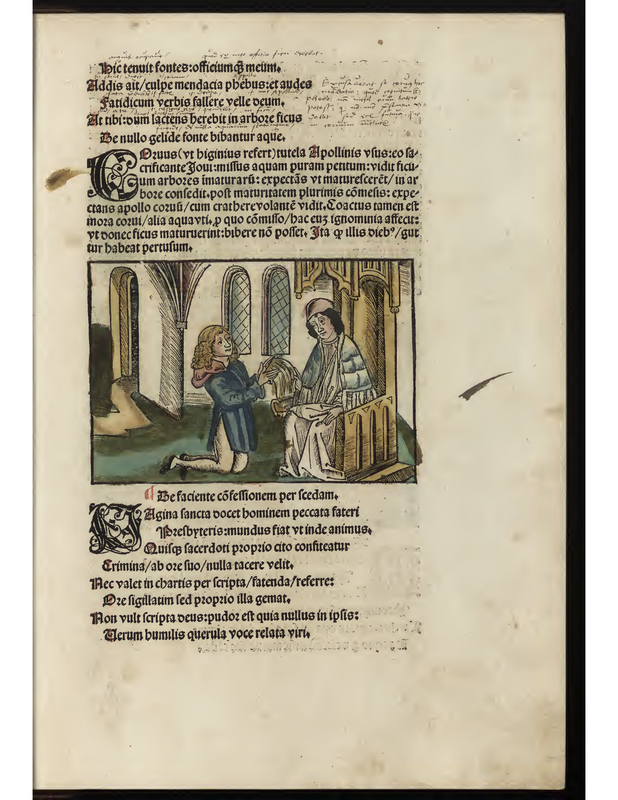 Hic tenuit fontes:officiumq̃ meum.
Addis ait/culpe mendacia phebus:et audes
Fatidicum verbis fallere velle deum.
At tibi:dum lactens herebit in arbore ficus
De nullo gelide fonte bibantur aque.
COruus(vt higinius refert)tutela Apollinis vsus:eo sa-
crificante Joui:missus aquam puram petitum:vidit ficu-
um arbores ĩmaturarũ: expectãs vt maturescerẽt/in ar
bore consedit.post maturitatem plurimis cõmesis: expe-
ctans apollo coruũ/cum cratherevolantẽ vidit.Coactus tamen est
mora corui/alia aqua vti.ꝓ quo cõmisso/hac euꝫ ignominia affecit:
vt donec ficus maturuerint:bibere nõ posset. Ita ꝙ illis dieb⁹/gut
tur habeat pertusum.
¶ De faciente cõfessionem per scedam.
PAgina sancta docet hominem peccata fateri
Presbyteris:mundus fiat vt inde animus.
Quisq̃ sacerdoti proprio cito confiteatur
Crimina/ab ore suo/nulla tacere velit.
Nec valet in chartis per scripta/fatenda/referre:
Ore sigillatim sed proprio illa gemat.
Non vult scripta deus:pudor est quia nullus in ipsis:
Verum humilis querula voce relata viri.